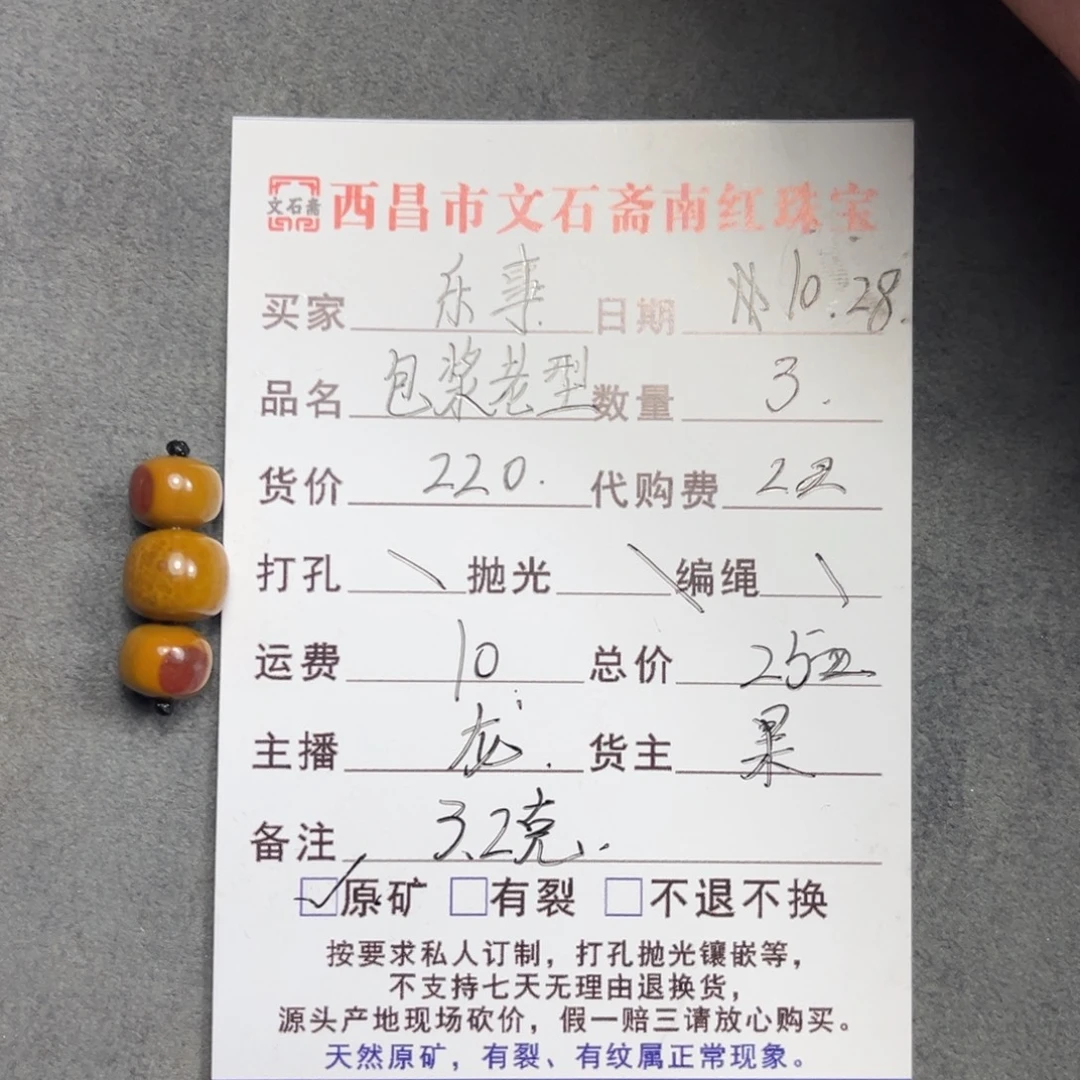 文石斋 西昌市文石斋南红珠宝
买家 乐事 日期 10.28.
品名 包浆老型 数量 3.
货价 220. 代购费 25
打孔 \ 抛光 \ 编绳 \
运费 10 总价 255
主播 龙. 货主 果
备注 3.2克.
原矿 有裂 不退不换
按要求私人订制，打孔抛光镶嵌等，
不支持七天无理由退换货，
源头产地现场砍价，假一赔三请放心购买。
天然原矿，有裂、有纹属正常现象。